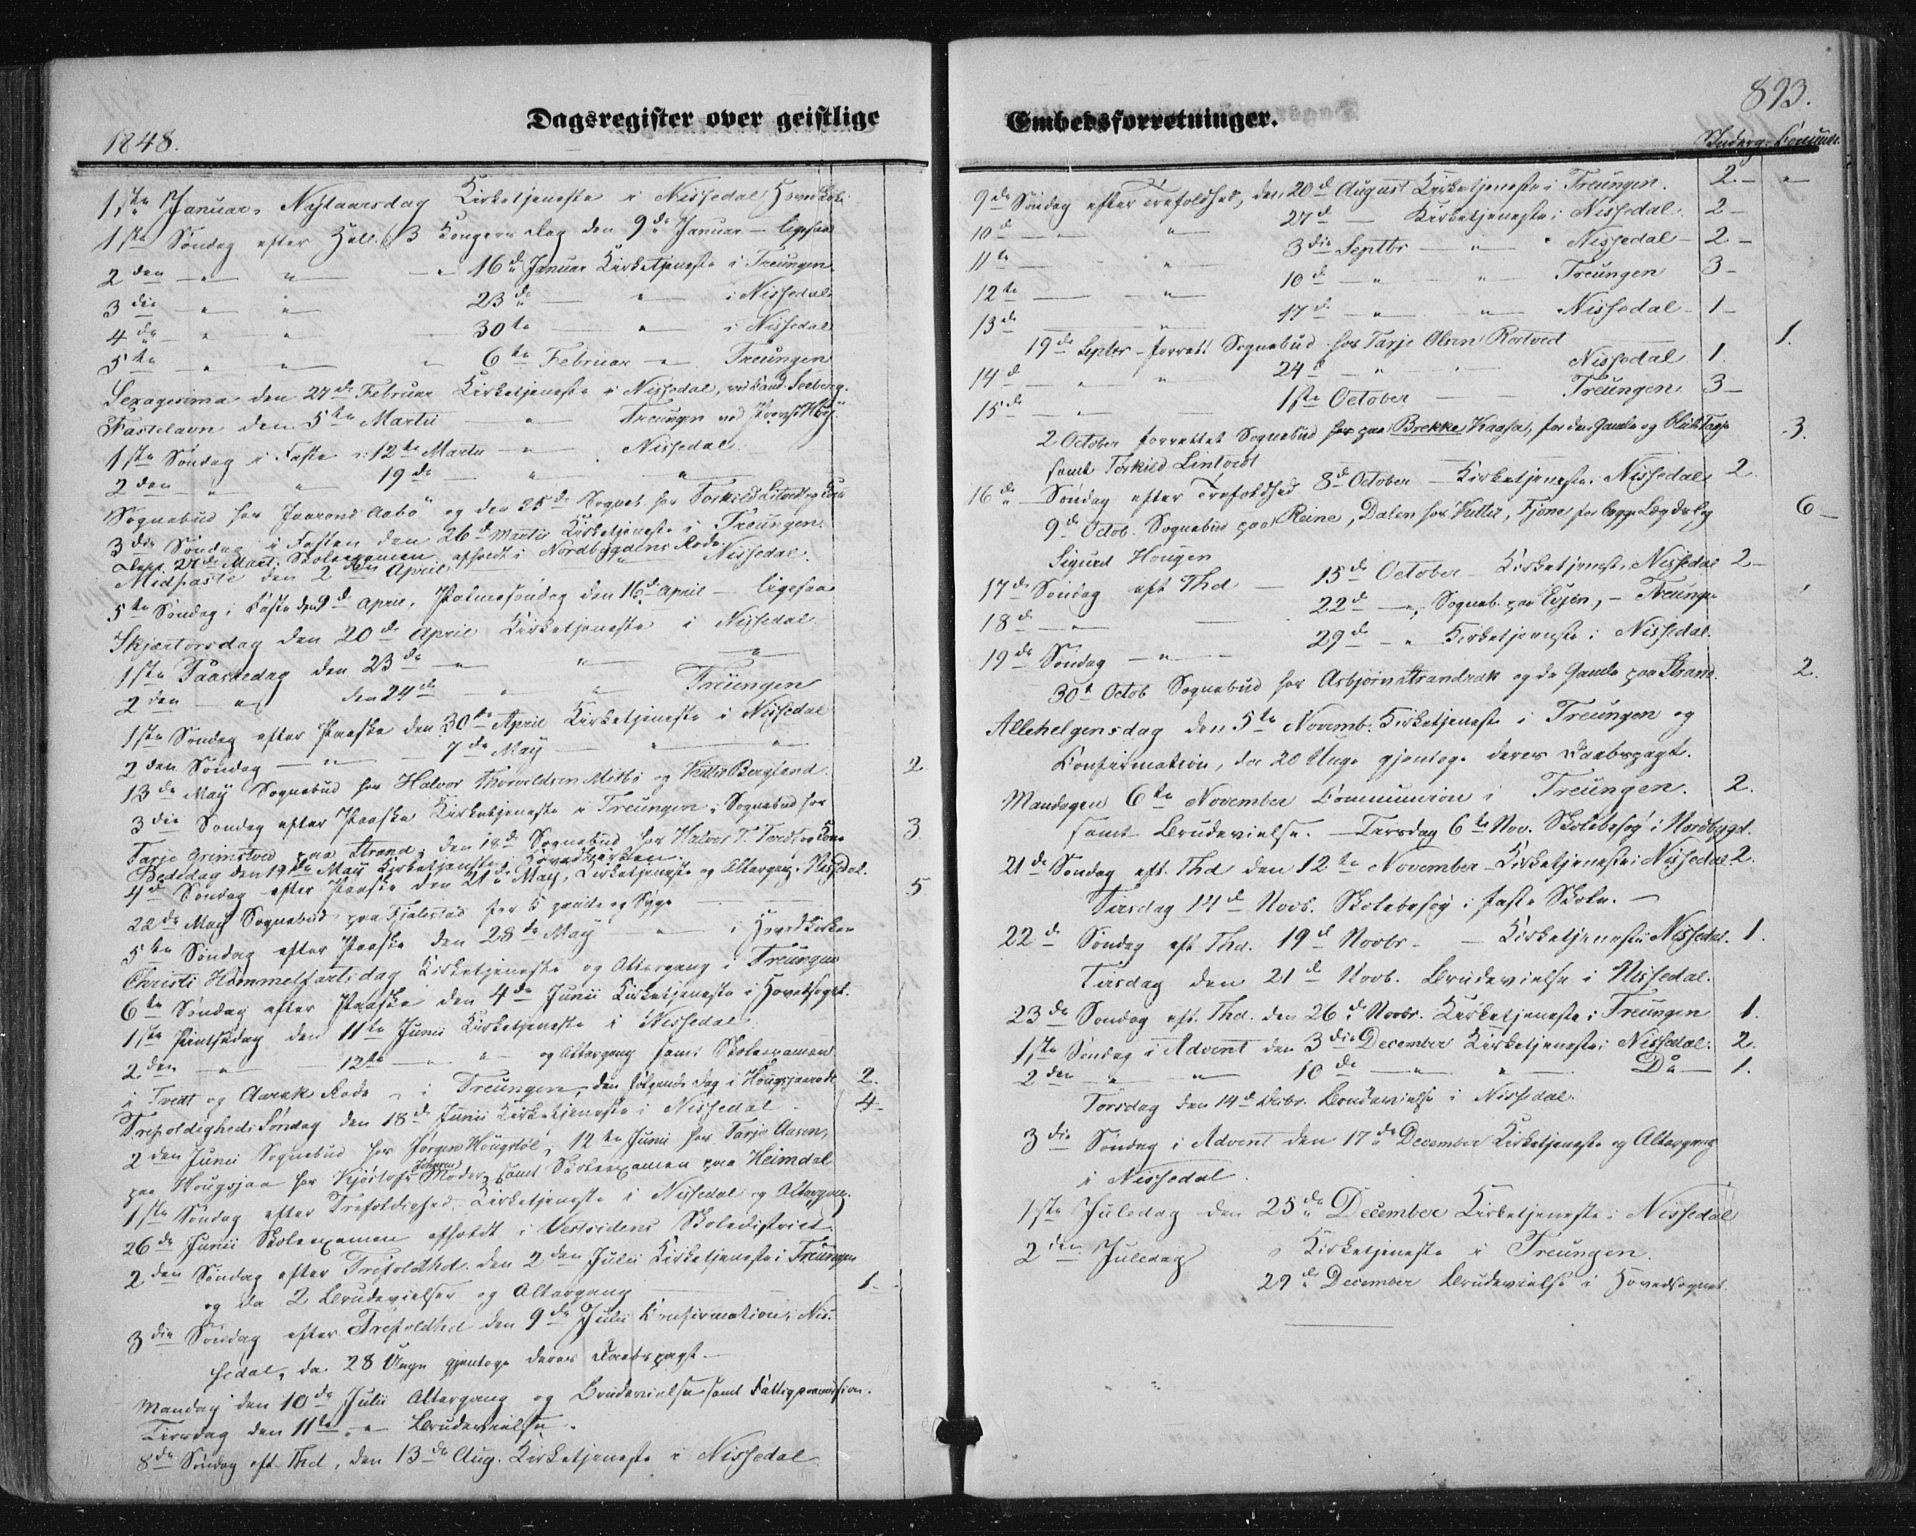 Dagsregister over geistlige
1848.
1ste Januar, Nytaarsdag Kirketjeneste i Nissedal Hovedk.
1ste Søndag efter Hell. 3 Kongers Dag den 9de Januar — ligesaa
2den — " — " 16de Januar Kirketjeneste i Treungen
3die " " 23de — " — i Nissedal
4de " " 30te — " — i Nissedal
5te " " " 6te Februar — " Treungen
Sexagesima den 27de Februar Kirketjeneste i Nissedal, ved Cand. Seeberg.
Fastelavn den 5te Martii — " — Treungen ved Provst
1ste Søndag i Faste 12te Martii — " — Nissedal
2den — " " 19de — " "
Sognebud hos Aabö og den 25de Sognebud hos Torkild
3die Søndag i Fasten den 26de Martii Kirketjeneste i Treungen.
27de Mart. Skoleexamen afholdt i Nordbygdens Rode.
Midfaste den 2den April — " — Nissedal.
5te Søndag i Faste den 9de April, Palmesøndag den 16de April — ligesaa
Skjærtorsdag den 20de April Kirketjeneste i Nissedal
1ste Paaskedag den 23de — " " — " —
2den — " den 24de " " Treungen
1ste Søndag efter Paaske den 30te April Kirketjeneste i Nissedal
2den Søndag — " — 7de May — " — " —
13de May Sognebud hos Halvor Thorvaldsen og Bergland 2
3die Søndag efter Paaske Kirketjeneste i Treungen, Sognebud hos
Tarje Grimstved paa Strand, den 18de Sognebud hos Halvor T. 3
Bededag den 19de May Kirketjeneste i Hovedkirken
4de Søndag efter Paaske den 21de May, Kirketjeneste og Altergang. Nissedal.
22de May Sognebud paa for 5 gamle og Syge 5
5te Søndag efter Paaske den 28de May — " — i Hovedkirken
Christi Himmelfartsdag Kirketjeneste og Altergang i Treungen
6te Søndag efter Paaske den 4de Junii Kirketjeneste i Hovedsognet.
1ste Pintsedag den 11te Junii Kirketjeneste i Nissedal.
2den — " — 12te — " " — og Altergang samt Skoleexamen
i Tvedt og Rode — i Treungen, den følgende Dag i 2.
Trefoldigheds Søndag den 18de Junii Kirketjeneste i Nissedal — 4 —
2den Junii Sognebud hos Jørgen, 12te Junii hos Tarje Aasen,
paa Hougsjaa hos Moder, samt Skoleexamen paa Heimdal
1ste Søndag efter Trefoldighed, Kirketjeneste i Nissedal og Altergang.
26de Junii Skoleexamen afholdt i Vestsidens Skoledistrict.
2den Søndag efter Trefoldhd. den 2den Julii Kirketjeneste i Treungen
og da 2 Brudevielser og Altergang — 1 —
3die Søndag efter Trefoldhd den 9de Julii Confirmation i Nis-
sedal, da 28 Unge gjentoge deres Daabspagt —
Mandag den 10de Julii Altergang og Brudevielse samt Fattigcommission.
Tirsdag den 11te — " Brudevielse.
8de Søndag eft. Thd, den 13de Aug. Kirketjeneste i Nissedal
893.
Embedsforretninger.
9de Søndag efter Trefoldhed, den 20de August Kirketjeneste i Treungen. 2 — "
10de — " — " 27de — Kirketjeneste i Nissedal. 2 —
11te — " 3die Septbr — " — " Nissedal — 2 —
12te — " — 10de — " — " Treungen 3 —
13de — " — 17de — " — " Nissedal — 1 —
19de Septbr — forrett. Sognebud hos Tarje Olsen 1.
14de — " " 24de — " Nissedal 1.
15de — " — 1ste October — — Treungen 3 —
2 October forrettet Sognebud paa Brekke, for den Gamle og 3.
samt Torkild Lintvedt
16de Søndag efter Trefoldhed 8de October — Kirketjeneste i Nissedal 2.
9de Octob. Sognebud paa Reine, Dalen hos, Fjone for begge 6 —
Sigurd Hougen
17de Søndag eft Thd — 15de October — Kirketjeneste Nissedal 2 —
18de — " — 22de — " Sogneb. paa, — Treungen
19de Søndag — " — 29de — " Kirketjeneste i Nissedal.
30te Octob Sognebud hos Asbjørn og de Gamle paa Strand. 2.
Allehelgensdag den 5te Novemb. Kirketjeneste i Treungen og
Confirmation, da 20 Unge gjentoge deres Daabspagt.
Mandagen 6te November Communion i Treungen. 2.
samt Brudevielse. — Tirsdag 6te Nov. Skolebesøg i Nordbygd.
21de Søndag eft. Thd den 12te November — Kirketjeneste i Nissedal 2.
Tirsdag 14de Novb. Skolebesøg i faste Skole. —
22de Søndag eft Thd. 19de Novbr. — Kirketjeneste Nissedal. 1.
Tirsdag den 21de Novb. Brudevielse i Nissedal.
23de Søndag eft. Thd. den 26de Novbr. Kirketjeneste i Treungen 1.
1ste Søndag i Advent den 3die December Kirketjeneste i Nissedal. 2.
2den — " " 10de — " — " Do — 1.
Torsdag den 14de Decbr. Brudevielse i Nissedal.
3die Søndag i Advent den 17de December Kirketjeneste og Altergang
i Nissedal.
1ste Juledag den 25de December Kirketjeneste i Nissedal
2den Juledag " Kirketjeneste i Treungen.
29de December Brudevielse i Hovedsognet.